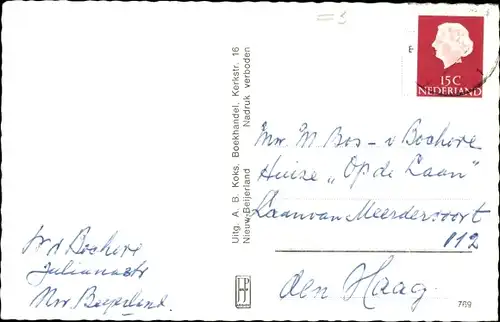 15 C
NEDERLAND
Uitg. A. B. Koks. Boekhandel, Kerkstr. 16
Nieuw-Beijerland Nadruk verboden
Mw M Bos - v Bochove
Huize „Op de Laan"
Laan van Meerdervoort
112
den Haag
v Bochove
Julianastr
Nw Beyerland.
769